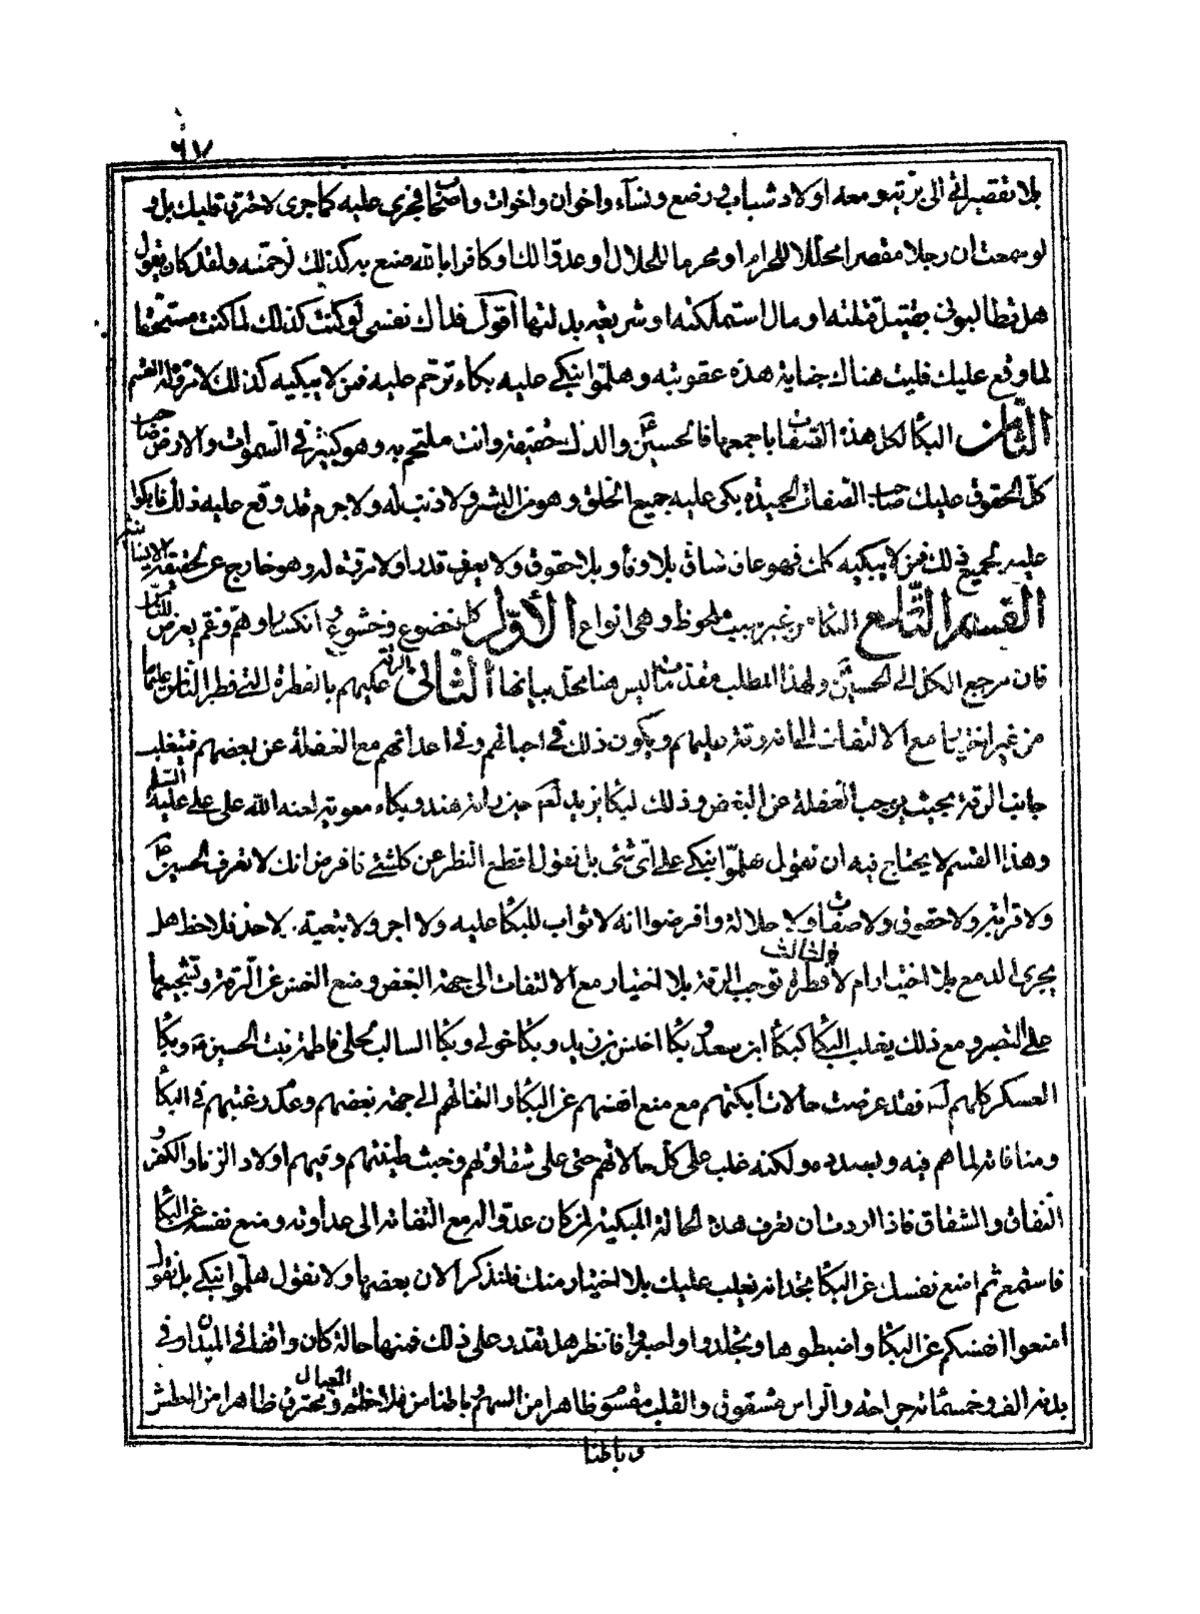 ٦٧
بلا تقصير اتى الى بريته ومعه اولاد شباب ورضع ونسآء واخوان واخوات واصحاب فجرى عليه كما جرى لاحترق قلبك بل و
لو سمعت ان رجلا مقصرا محللا للحرام او محرما للحلال او عدوا لك او كافرا بالله صنع به كذلك لرحمته ولقد كان يقول
هل تطالبونى بقتيل قتلته او مال استملكته او شريعة بدلتها اقول فداك نفسى لو كنت كذلك لما كنت مستحقا
لما وقع عليك فليت هناك جناية هذه عقوبته وهلموا نبكى عليه بكاء ترحم عليه فمن لا يبكيه كذلك لا رقة له القسم
الثامن البكآء لكل هذه الصفات باجمعها فالحسين ع والدك حقيقة وانت ملتحم به وهو كبير فى السموات والارض صاحب
كل الحقوق عليك صاحب الصفات الحميدة بكى عليه جميع الخلق وهو من البشر ولا ذنب له ولا جرم قد وقع عليه ذلك فابكوا
عليه بجميع ذلك فمن لا يبكيه كذلك فهو عاق شاق بلا وفآء وبلا حقوق ولا يعرف قدرا ولا رقة له وهو خارج عن حقيقة الانسانية
القسم التاسع البكاء من غير سبب ملحوظ وهى انواع الأول كل خضوع وخشوع وانكسار وهم وغم يعرض للبكاء
فان مرجع الكل الى الحسين ع ولهذا المطلب مقدمات ليس هنا محل بيانها الثانى الرقة عليهم بالفطرة التى فطر الناس عليها
من غير اختيار مع الالتفات الى انه رقة عليهم ويكون ذلك فى احبائهم وفى اعدائهم مع الغفلة عن بعضهم فيغلب
جانب الرقة بحيث يوجب الغفلة عن البغض وذلك لبكآء يزيد لعنه حين راته هند وبكاء معوية لعنه الله على على عليه السلم
وهذا القسم لا يحتاج فيه ان نقول هلموا نبكى على اى شئ بل نقول اقطع النظر عن كل شئ فافرض انك لا تعرف الحسين ع
ولا قرابته ولا حقوق ولا صفات ولا جلالة وافرضوا انه لا ثواب للبكآء عليه ولا اجر ولا تبعية لاحد فلاحظ هل
يجرى الدمع بلا اختيار ام لا والثالث فطرة توجب الرقة بلا اختيار مع الالتفات الى جهة البغض ومنع النفس عن الرقة وتشجيعها
على الصبر ومع ذلك يغلب البكآء كبكآء ابن سعد وبكآء اخنس بن زيد وبكآء خولى وبكآء السالب لحلى فاطمة بنت الحسين ع وبكآء
العسكر كلهم له فقد عرضت حالات ابكتهم مع منع انفسهم عن البكآء والتفاتهم الى جهة بغضهم وعدم رغبتهم فى البكآء
ومنافاته لما هم فيه وبصدده ولكنه غلب على كل حالاتهم حتى على شقاوتهم وخبث طينتهم وفيهم اولاد الزنا والكفر و
النفاق والشقاق فاذا اردت ان تعرف هذه الحالة المبكية لمن كان عدوا له مع التفاته الى عداوته ومنع نفسه عن البكآء
فاستمع ثم امنع نفسك عن البكآء تجد انه يغلب عليك بلا اختيار منك فلنذكر الان بعضها ولا نقول هلموا نبكى بل نقول
امنعوا انفسكم عن البكآء واضبطوها وتجلدوا واصبروا فانظر هل تقدر على ذلك فمنها حالة كان واقفا فى الميدان وفى
بدنه الف وخمسمائة جراحة والراس مشقوق والقلب مقسوم ظاهرا من السهم وباطنا من فلاخلة العيال ومحترق ظاهرا من العطش
وباطنا